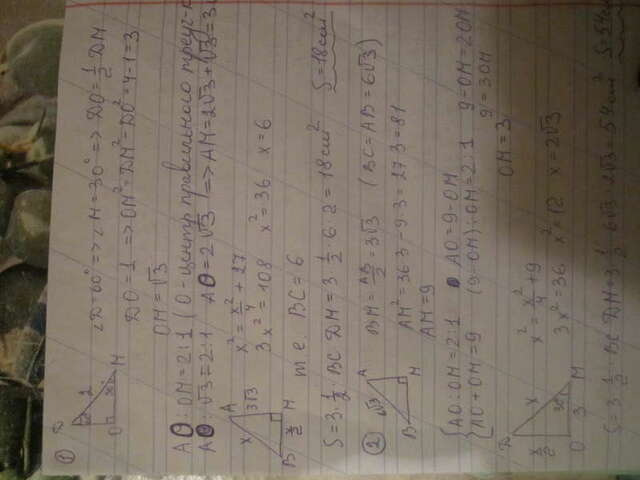 ①
∠D=60° => ∠M=30° => DO=½DM
DO=1 => OM²=DM²-DO²=4-1=3
OM=√3
AO:OM=2:1 (O-центр правильного треуг-
AO:√3=2:1 AO=2√3 => AM=2√3+√3=3
x²=x²/4+27
3x²=108 x²=36 x=6
т е BC=6
S=3·½·BC·DM=3·½·6·2=18см² S=18см²
② BM=AB/2=3√3 (BC=AB=6√3)
AM²=36·3-9·3=27·3=81
AM=9
{AO:OM=2:1 AO=9-OM
{AO+OM=9 (9-OM):OM=2:1 9-OM=2OM
9=3OM
OM=3
x²=x²/4+9
3x²=36 x²=12 x=2√3
S=3·½·BC·DM=3·½·6√3·2√3=54см² S=54см
D 2 O M
A x 3√3 B x/2 M
A B M
D x x/2 30° O 3 M